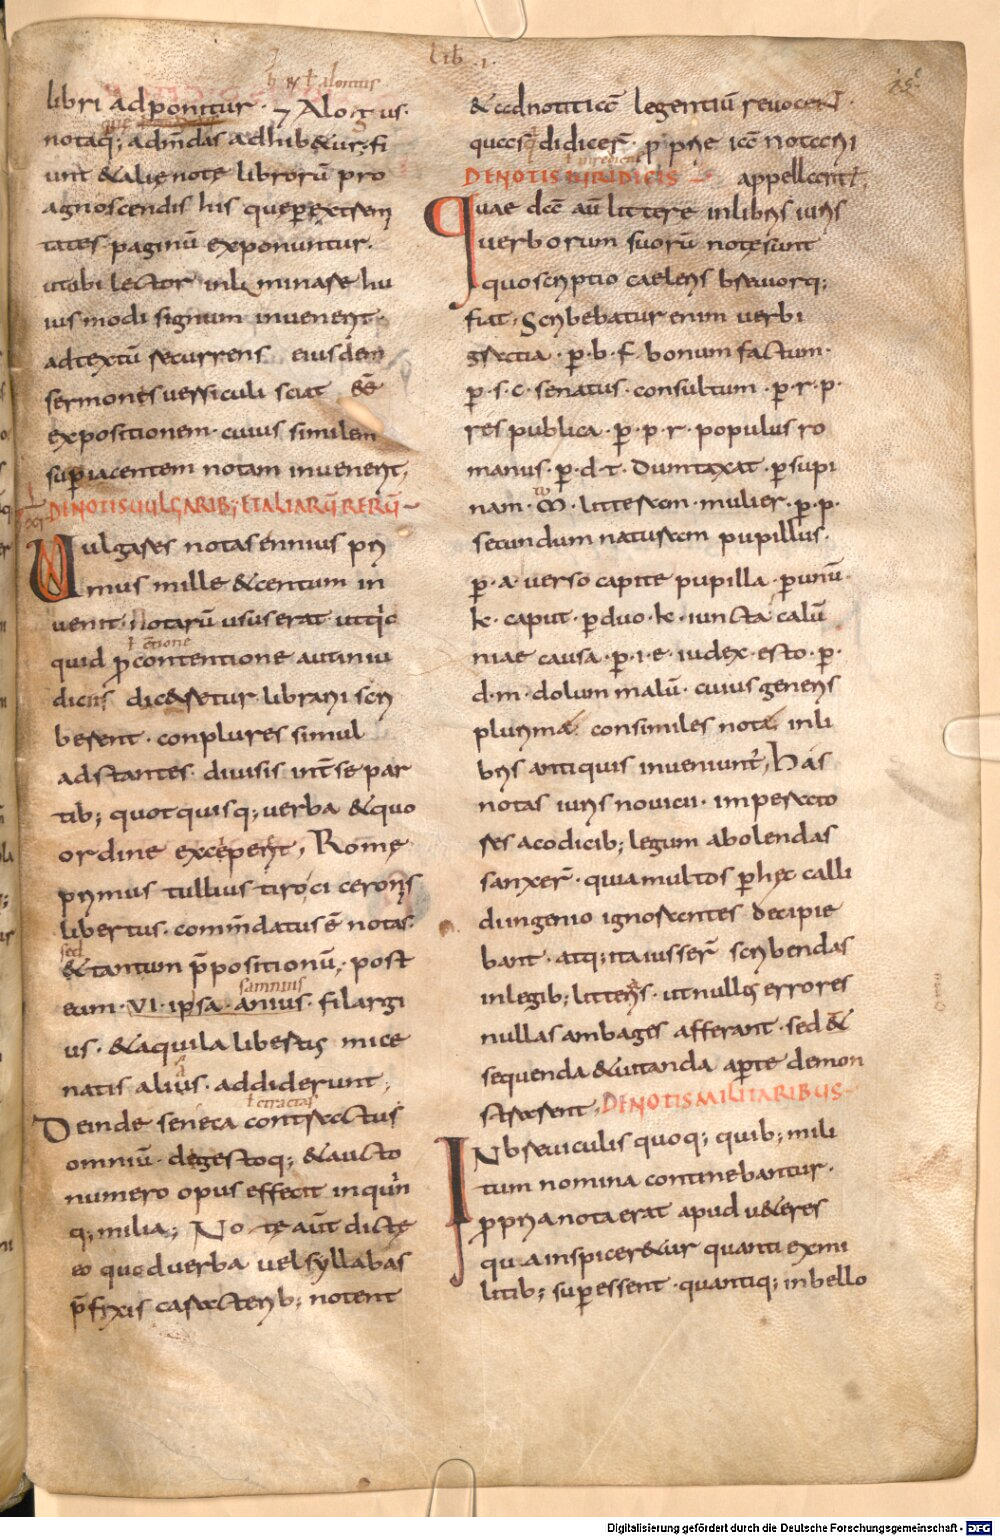 Lib. I.
libri adponitur · Alogus ·
notaq; adm̄das adhib&ur; fi
unt & alię notę librorū pro
agnoscendis his quę p extrem
tates paginū exponuntur.
ut ubi lector in liminare hu
ius modi signum invenerit
ad textū recurrens eiusdem
sermones versiculi sciat
expositionem · cuius similem
supiacentem notam invenerit,
DE NOTIS VULGARIB; ET ALIARŪ RERŪ
Vulgares notas ennius pri
mus mille & centum in
venit. Notarū usus erat ut qic
quid p contentione aut in iu
diciis dicer&ur librarii scri
berent · conplures simul
adstantes · divisis int se par
tib; quot quisq; verba & quo
ordine exciperent, Romę
primus tullius tiro ciceronis
libertus · comm̄datus ē notas.
sed
& tantum p̄positionū; · post
samnius
eum · VI · ipsa · anius · filargi
us · & aquila libertus mice
natis alius · addiderunt,
ł ctractas
Deinde seneca contractus
omniū · degestoq; & aucto
numero opus effecit in quin
q; milia; Notę aūt dictę
eo quod verba vel syllabas
p̄fixis caracterib; notent
& ad notitiā legentiū revocent
quas q didicer̄ · p prie iā notarii
DE NOTIS IURIDICIS appellant,
Quae dā aū littere in libris iuris
verborum suorū notę sunt
quo scriptio caeleris breviorq;
fiat, Scribebatur enim verbi
gratia · p · b · f · bonum factum ·
p · s · c · senatus · consultum · p · r · p ·
res publica · p · p · r · populus ro
manus · p · d · t · dumtaxat · p supi
nam · m · litteram · mulier · p · p ·
secundum naturam pupillus ·
p · a · verso capite pupilla · p unū ·
k · caput · p duo · k · iuncta calū
niae causa · p · i · e · iudex · esto · p ·
d · m · dolum malū · cuius generis
plurima consimiles nota in li
bris antiquis inveniunt, Has
notas iuris novicii · imperato
res a codicib; legum abolendas
sanxer̄ · quia multos p hęc calli
d ingenio ignorantes decipie
bant · atq; ita iusser̄ scribendas
in legib; litteris · ut nullos errores
nullas ambages afferant · sed &
sequenda & vitanda apte demon
strarent, DE NOTIS MILITARIBUS
In breviculis quoq; quib; mili
tum nomina continebantur ·
p pria nota erat apud v&eres
qua inspicer&ur quanti ex mi
litib; supessent · quantiq; in bello
Digitalisierung gefördert durch die Deutsche Forschungsgemeinschaft - DFG